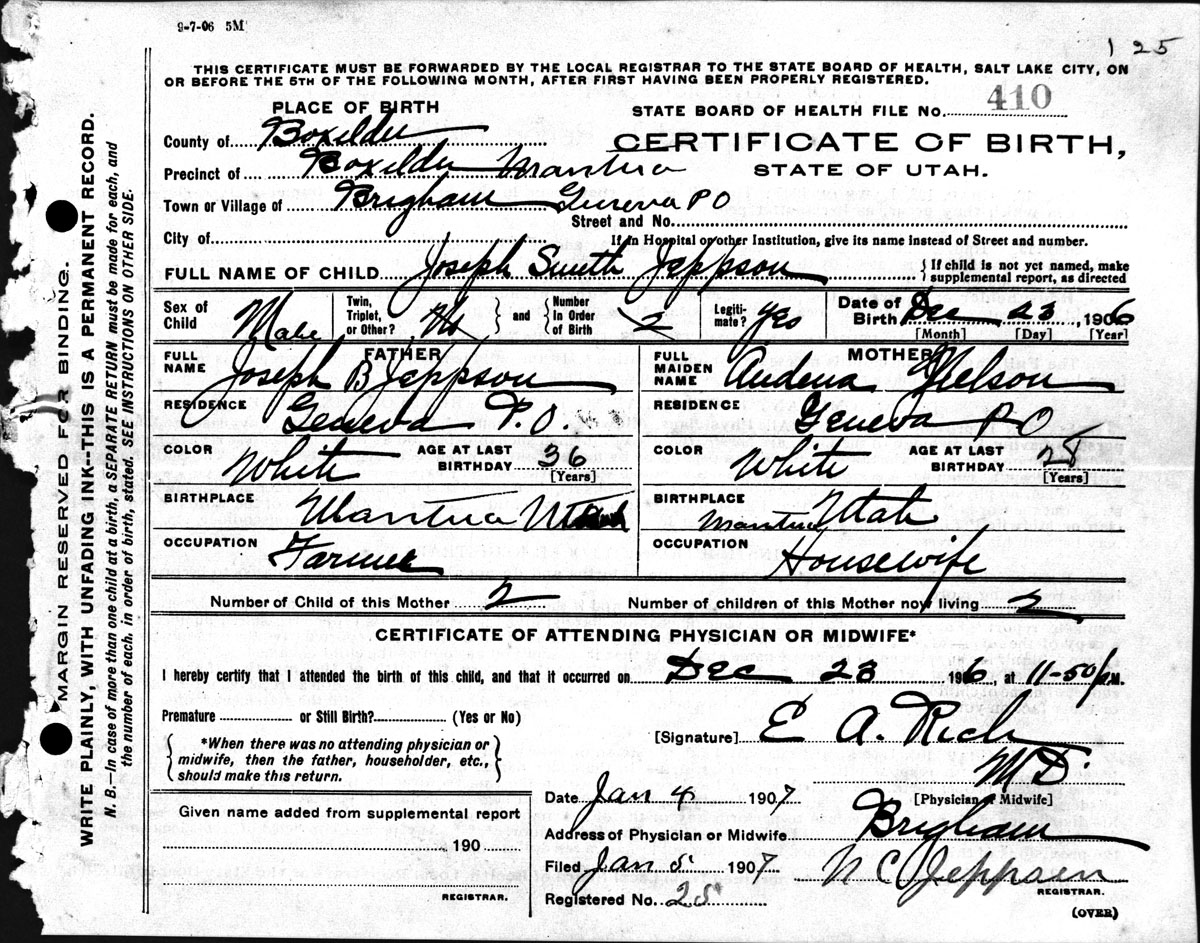 9-7-06 5M
1 25
THIS CERTIFICATE MUST BE FORWARDED BY THE LOCAL REGISTRAR TO THE STATE BOARD OF HEALTH, SALT LAKE CITY, ON
OR BEFORE THE 5TH OF THE FOLLOWING MONTH, AFTER FIRST HAVING BEEN PROPERLY REGISTERED.
PLACE OF BIRTH
STATE BOARD OF HEALTH FILE No. 410
County of Boxelder
CERTIFICATE OF BIRTH,
Precinct of Boxelder Mantua
STATE OF UTAH.
Town or Village of Brigham Geneva PO
Street and No.
City of
If in Hospital or other Institution, give its name instead of Street and number.
FULL NAME OF CHILD Joseph Smith Jeppson { If child is not yet named, make supplemental report, as directed
Sex of Child Male Twin, Triplet, or Other? No } and { Number In Order of Birth 2 Legitimate? Yes Date of Birth Dec 23, 1906
[Month] [Day] [Year]
FATHER
FULL NAME Joseph B Jeppson
RESIDENCE Geneva P.O.
COLOR White AGE AT LAST BIRTHDAY 36 [Years]
BIRTHPLACE Mantua Utah
OCCUPATION Farmer
MOTHER
FULL MAIDEN NAME Audena Nelson
RESIDENCE Geneva PO
COLOR White AGE AT LAST BIRTHDAY 28 [Years]
BIRTHPLACE Mantua Utah
OCCUPATION Housewife
Number of Child of this Mother 2 Number of children of this Mother now living 2
CERTIFICATE OF ATTENDING PHYSICIAN OR MIDWIFE*
I hereby certify that I attended the birth of this child, and that it occurred on Dec 23 1906, at 11-50 P.M.
Premature or Still Birth? (Yes or No)
{ *When there was no attending physician or midwife, then the father, householder, etc., should make this return. }
[Signature] E A. Rich
M D.
[Physician or Midwife]
Date Jan 4 1907
Address of Physician or Midwife Brigham
Filed Jan 5 1907 N C Jeppsen
REGISTRAR.
Registered No. 25
(OVER)
Given name added from supplemental report
190
REGISTRAR.
MARGIN RESERVED FOR BINDING.
WRITE PLAINLY, WITH UNFADING INK--THIS IS A PERMANENT RECORD.
N. B.—In case of more than one child at a birth, a SEPARATE RETURN must be made for each, and
the number of each, in order of birth, stated. SEE INSTRUCTIONS ON OTHER SIDE.